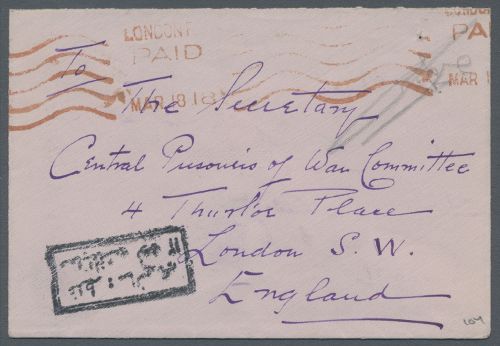 LONDON
PAID
MAR 18 18
LONDON
PA
MAR 1
To
The Secretary
Central Prisoners of War Committee
4 Thurloe Place
London S.W.
England
104